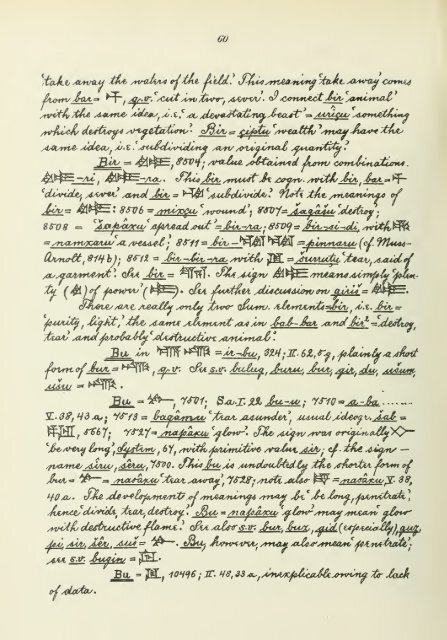 60
'take away the waters of the field.' This meaning 'take away' comes
from bar = 𒁇, q.v. 'cut in two, sever.' I connect bir 'animal'
with the same idea, i.e. 'a devastating beast' = urīçu 'something
which destroys vegetation.' Bir = çiptu 'wealth' may have the
same idea, i.e. 'subdividing an original quantity.'
Bir = , 8504; value obtained from combinations.
-ri, -ra. This bir must be cogn. with bir, bar = 𒁇
'divide, sever' and bir = 'subdivide.' Note the meanings of
bir = : 8506 = mixçu 'wound'; 8507 = šagāšu 'destroy;
8508 = 'sapāxu 'spread out' = bir-ra; 8509 = bir-si-di, with
= namxaru 'a vessel'; 8511 = bir- = pinnaru (cf. Muss-
Arnolt, 814b); 8512 = bir-bir-ra with = šurrutu 'tear, said of
a garment.' See bir = . The sign means simply 'plen-
ty ( ) of power' ( ). See further discussion on giriš = .
There are really only two Sum. elements = bir, i.e. bir =
'purity, light,' the same element as in bab-bar and bir = 'destroy,
tear' and probably 'destructive animal.'
Bu in = ir-bu, 324; II. 62, 5 g, plainly a short
form of bur = , q.v. See s.v. bulug, buru, bur, gir, du, ušum,
ušu = .
Bu = , 7501; Sa. I. 22 bu-u; 7510 = a-ba ........
V. 38, 43 a; 7513 = bagāmu 'tear asunder', usual ideogr. šab =
, 5667; 7527 = napāxu 'glow.' The sign was originally
'be very long', System, 67, with primitive value sir; cf. the sign-
name sîru, sêru, 7500. This bu is undoubtedly the shorter form of
bur = = nasāxu 'tear away', 7528; note also = nasāxu, V. 38,
40 a. The development of meanings may be 'be long, penetrate',
hence 'divide, tear, destroy.' Bu = napāxu 'glow' may mean 'glow
with destructive flame.' See also s.v. bur, buz, gid (especially), guz,
pi, sir, šêr, suš = . Bu, however, may also mean 'penetrate';
see s.v. bugin = .
Bu = , 10496; II. 48, 33 a, inexplicable owing to lack
of data.